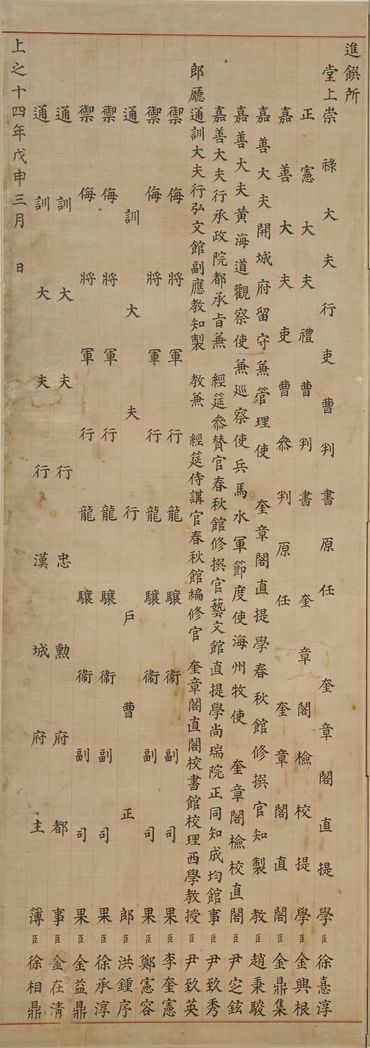 進饌所
堂上崇祿大夫行吏曹判書原任 奎章閣直提學臣徐憙淳
正憲大夫禮曹判書 奎章閣檢校提學臣金興根
嘉善大夫吏曹參判原任 奎章閣直閣臣金鼎集
嘉善大夫開城府留守兼管理使 奎章閣直提學春秋館修撰官知製教臣趙秉駿
嘉善大夫黃海道觀察使兼巡察使兵馬水軍節度使海州牧使 奎章閣檢校直閣臣尹定鉉
嘉善大夫行承政院都承旨兼 經筵參贊官春秋館修撰官藝文館直提學尚瑞院正同知成均館事臣尹致秀
郎廳通訓大夫行弘文館副應教知製 教兼 經筵侍講官春秋館編修官 奎章閣直閣校書館校理西學教授臣尹致英
禦侮將軍行龍驤衛副司果臣李奎憲
禦侮將軍行龍驤衛副司果臣鄭憲容
通訓大夫行戶曹正郎臣洪鍾序
禦侮將軍行龍驤衛副司果臣徐承淳
禦侮將軍行龍驤衛副司果臣金益鼎
通訓大夫行忠勳府都事臣金在清
通訓大夫行漢城府主簿臣徐相鼎
上之十四年戊申三月 日